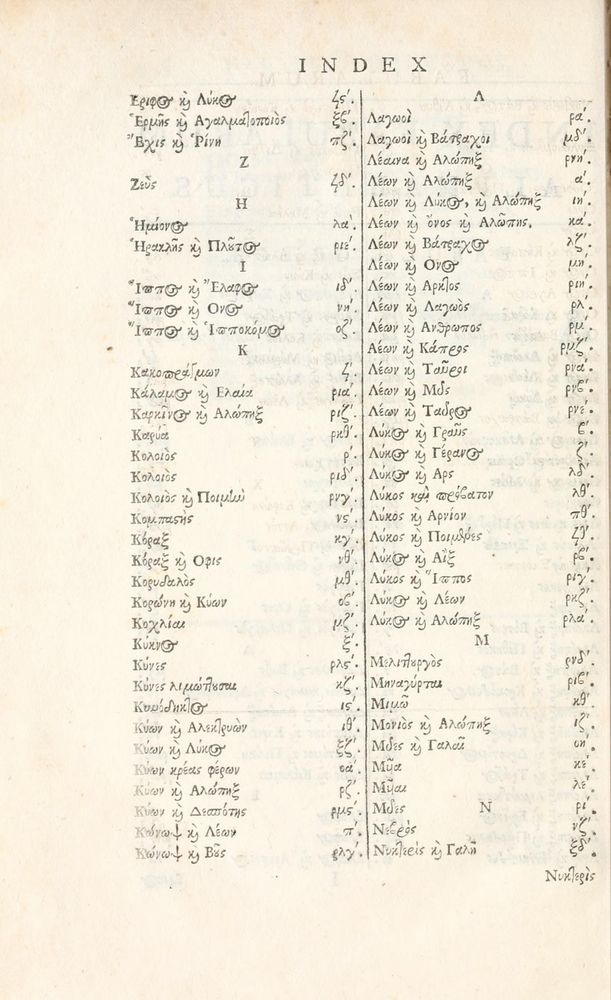 INDEX
Ἔριφος κ Λύκος ζς΄.
Ἑρμῆς κ Αγαλματοποιὸς ξϐ΄.
Ἔχις κ Ῥίνη πζ΄.
Ζ
Ζεὺς ζδ΄.
Η
Ἡμίονος λα΄.
Ἡρακλῆς κ Πλῦτος ριε΄.
Ι
Ἵππος κ Ἔλαφος ιδ΄.
Ἵππος κ Ονος νη΄.
Ἵππος κ Ἱπποκόμος οζ΄.
Κ
Κακοπράγμων ζ΄.
Κάλαμος κ Ελαία ρια΄.
Καρκῖνος κ Αλώπηξ ριζ΄.
Καρύα ρκθ΄.
Κολοιὸς ρ΄.
Κολοιὸς ριδ΄.
Κολοιὸς κ Ποιμὼ ρνγ΄.
Κομπαστὴς νς΄.
Κόραξ κγ΄.
Κόραξ κ Οφις νθ΄.
Κορυδαλὸς μθ΄.
Κορώνη κ Κύων οϐ΄.
Κοχλίαι μζ΄.
Κύκνος ξ΄.
Κύνες ρλς΄.
Κύνες λιμώττουσαι κζ΄.
Κυνόδηκτος ις΄.
Κύων κ Αλεκτρυὼν ιθ΄.
Κύων κ Λύκος ξζ΄.
Κύων κρέας φέρων οα΄.
Κύων κ Αλώπηξ ρζ΄.
Κύων κ Δεσπότης ρμς΄.
Κώνωψ κ Λέων π΄.
Κώνωψ κ Βῦς ρλγ΄.
Λ
Λαγωοὶ ρα΄.
Λαγωοὶ κ Βάτραχοι μδ΄.
Λέαινα κ Αλώπηξ ρνη΄.
Λέων κ Αλώπηξ α΄.
Λέων κ Λύκος, κ Αλώπηξ ιη΄.
Λέων κ ὄνος κ Αλώπης. κα΄.
Λέων κ Βάτραχος λζ΄.
Λέων κ Ονος μη΄.
Λέων κ Αρκτος ριη΄.
Λέων κ Λαγωὸς ρλ΄.
Λέων κ Ανθρωπος ρμ΄.
Λέων κ Κάπρος ρμζ΄.
Λέων κ Ταῦροι ρνα΄.
Λέων κ Μῦς ρνϐ΄.
Λέων κ Ταῦρος ρνε΄.
Λύκος κ Γραῦς ϐ΄.
Λύκος κ Γέρανος ζ΄.
Λύκος κ Αρς λδ΄.
Λύκος καὶ πρόβατον λθ΄.
Λύκος κ Αρνίον πθ΄.
Λύκος κ Ποιμένες ζθ΄.
Λύκος κ Αἲξ ρϐ΄.
Λύκος κ Ἵππος ριγ΄.
Λύκος κ Λέων ρκζ΄.
Λύκος κ Αλώπηξ ρλα΄.
Μ
Μελιτουργὸς ρνδ΄.
Μηναγύρται ριϐ΄.
Μιμὼ κθ΄.
Μονιὸς κ Αλώπηξ ιζ΄.
Μύες κ Γαλαῖ οη.
Μῦα κε΄.
Μῦαι λε΄.
Μύες ρι΄.
Ν
Νεβρὸς νζ΄.
Νυκτερὶς κ Γαλῆ ξδ΄.
Νυκτερὶς